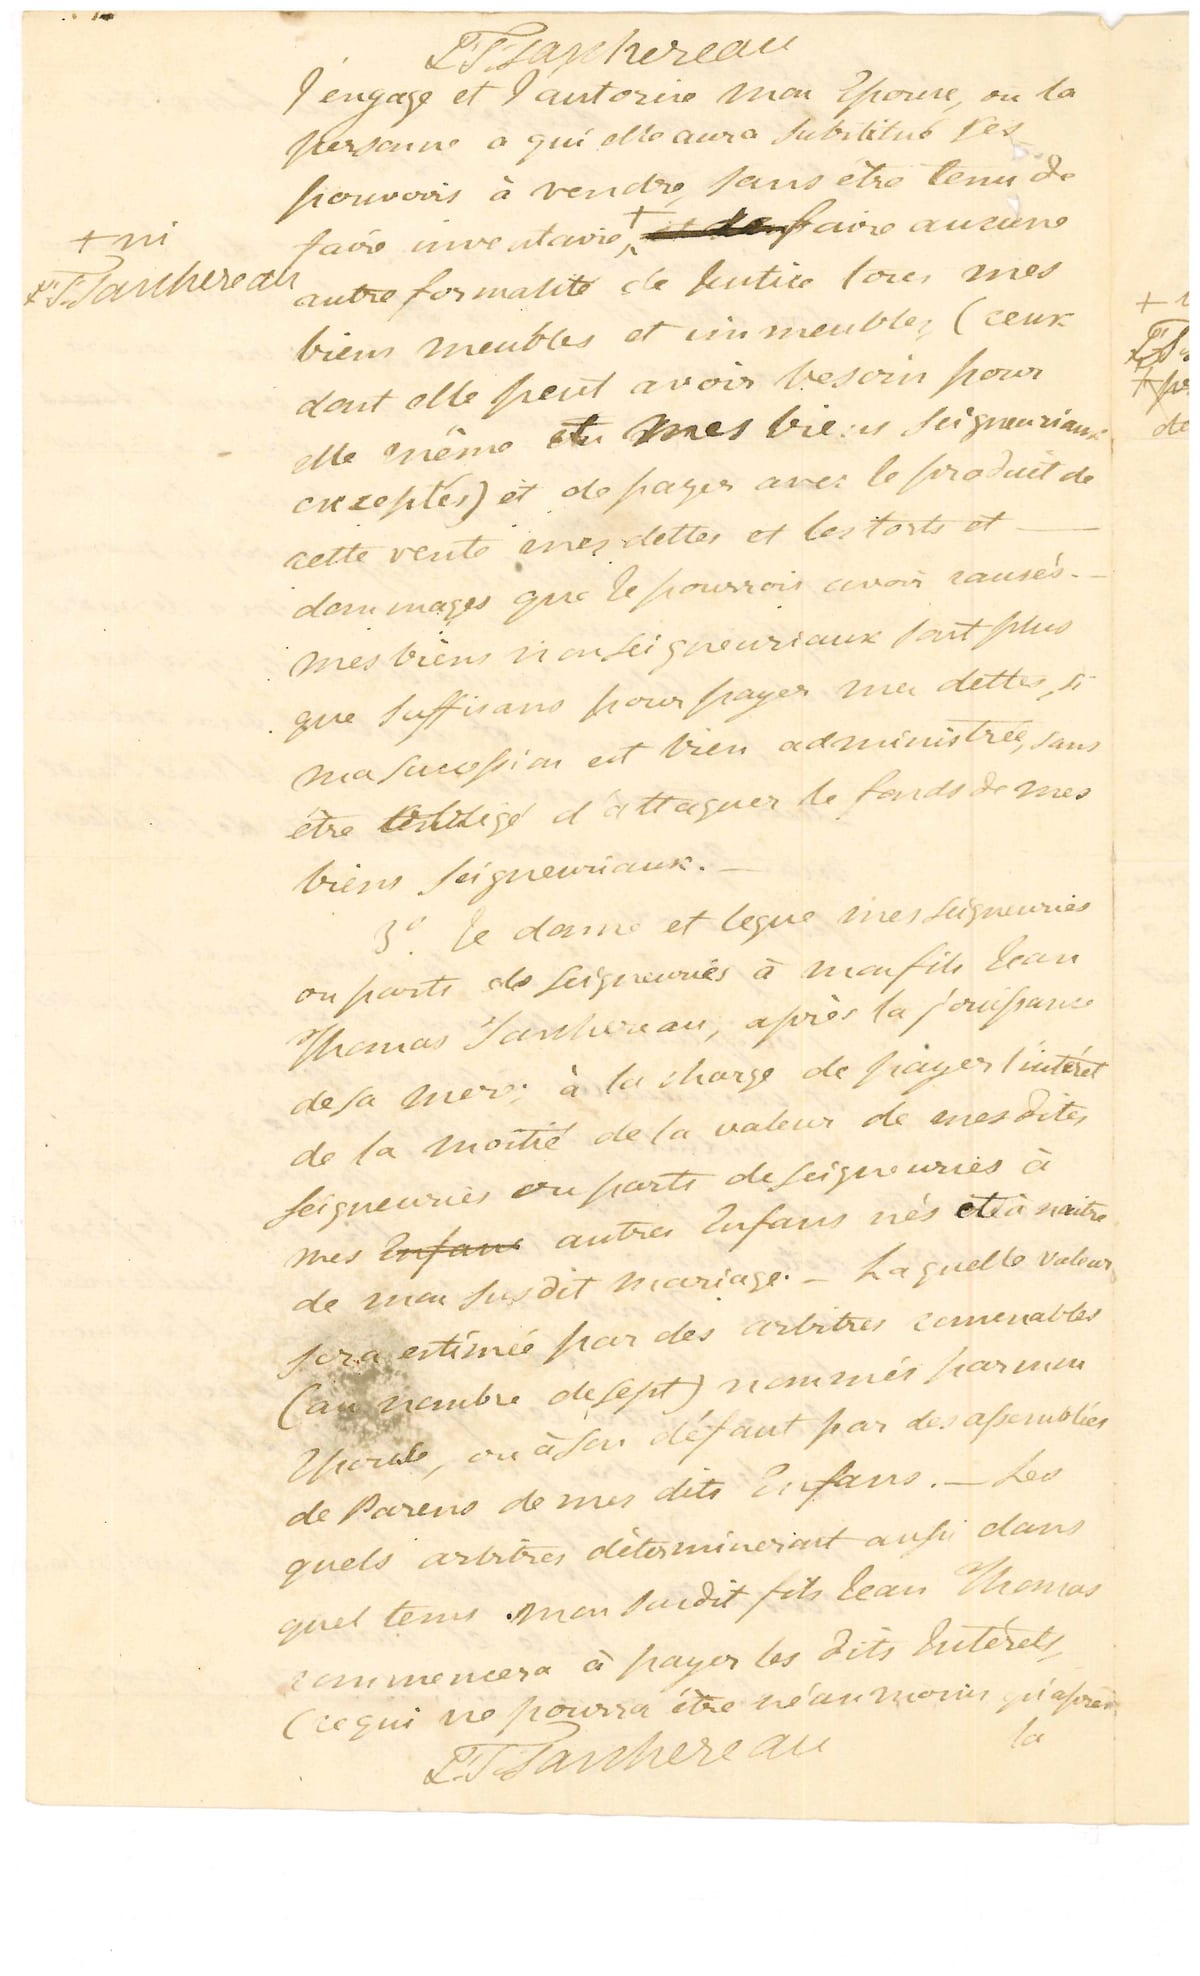 J. T. Taschereau
J'engage et J'autorise mon Epouse, ou la
personne a qui elle aura substitué ses
pouvoirs à vendre, sans être tenu de
faire inventaire, + faire aucune
+ ni
J. T. Taschereau
autre formalité de Justice tous mes
biens meubles et immeubles, (ceux
dont elle peut avoir besoin pour
elle même et mes biens Seigneuriaux
exceptés) et de payer avec le produit de
cette vente mes dettes et les torts et —
dommages que Je pourrois avoir causés. —
mes biens non Seigneuriaux sont plus
que suffisans pour payer mes dettes, si
ma succession est bien administrée, sans
être obligé d'attaquer le fonds de mes
biens Seigneuriaux. —
3º. Je donne et legue mes seigneuries
ou parts de seigneuries à mon fils Jean
Thomas Taschereau, après la jouissance
de sa mere; à la charge de payer l'intérêt
de la moitié de la valeur de mes dites
seigneuries ou parts de seigneuries à
mes Enfans autres Enfans nés et à naitre
de mon susdit mariage. — Laquelle valeur
sera estimée par des arbitres convenables
(au nombre de sept) nommés par mon
Epouse, ou à son défaut par des assemblées
de Parens de mes dits Enfans. — Les
quels arbitres détermineront aussi dans
quel tems mon susdit fils Jean Thomas
commencera à payer les dits Intérêts,
(ce qui ne pourra être néanmoins qu'après
la
J. T. Taschereau